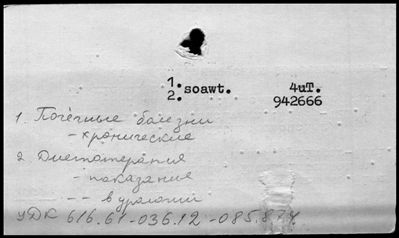 1. soawt. 4иТ.
2. 942666
1. Почечные болезни
- хронические
2 Диетотерапия
показания
- - в урологии
УДК 616.61-036.12-085.874